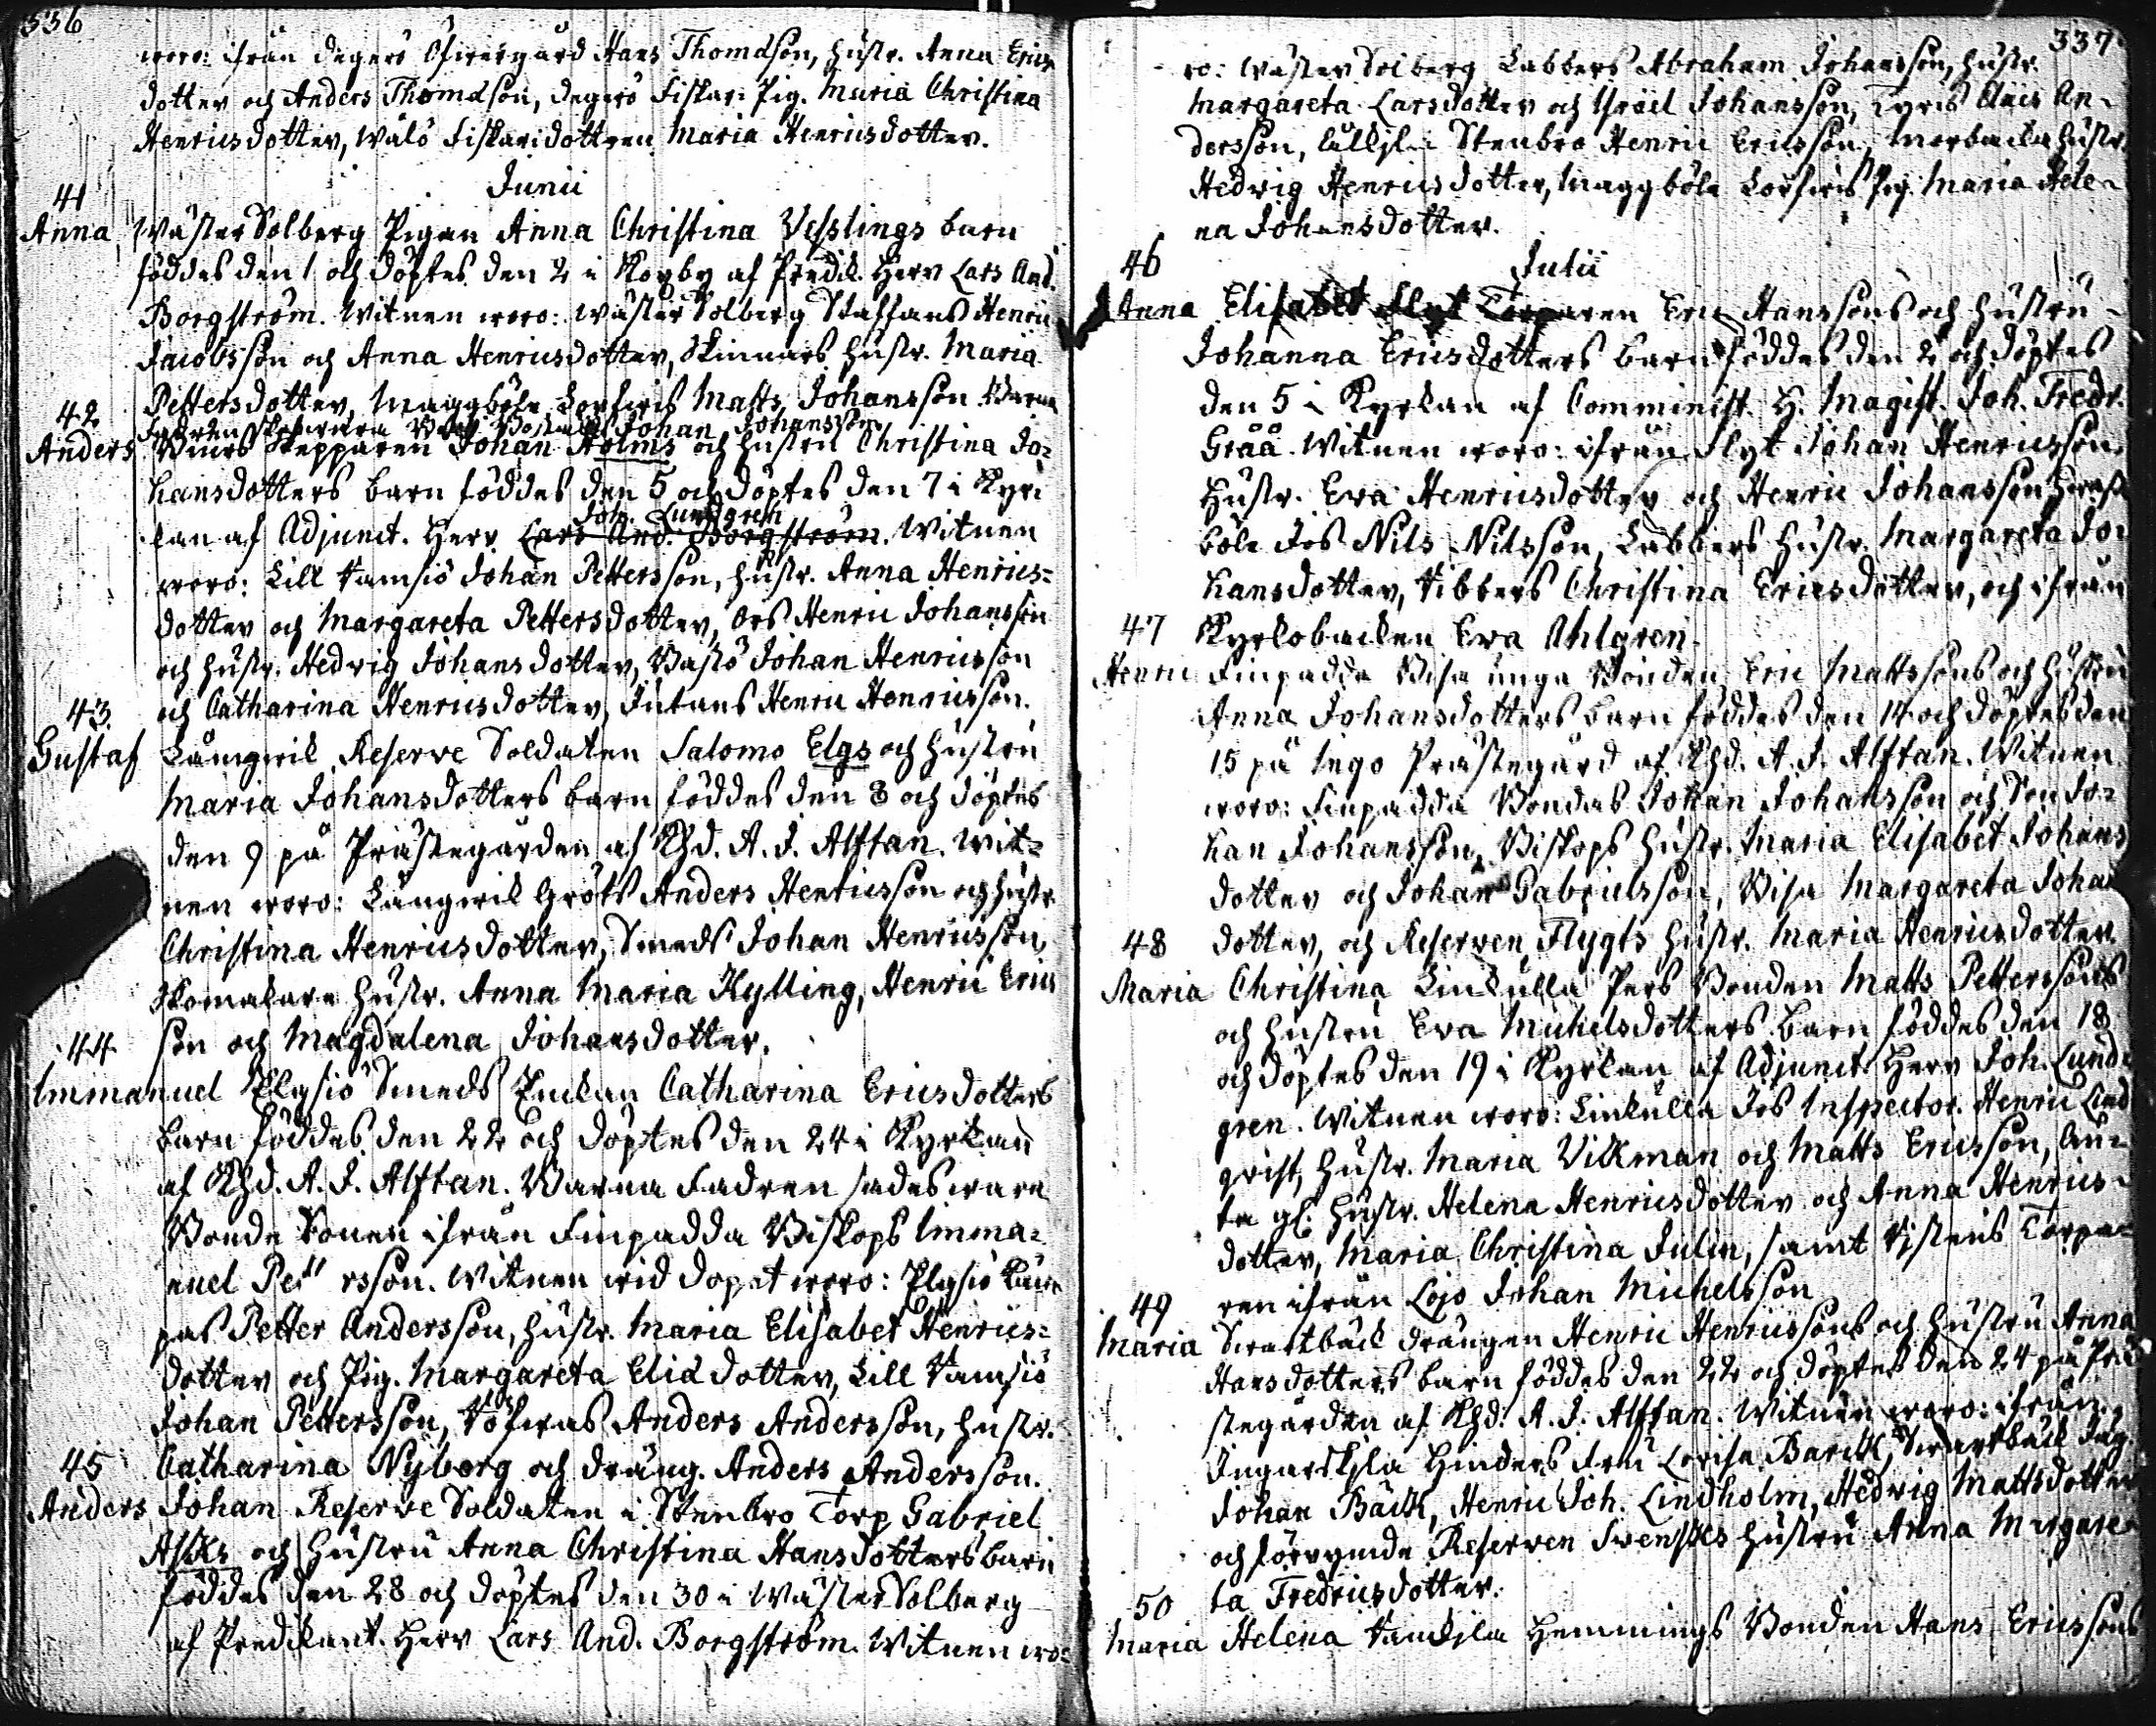 336
woro: ifrån Degerö Öfwergård Hans Thomdson, hustr. Anna Erics
dotter och Anders Thomdson, Degerö Fiskar: Pig. Maria Christina
Henricsdotter, Wålö Fiskaridottren Maria Henricsdotter.
Junii
41
Anna Wäster Solberg Pigan Anna Christina Vesslings barn
föddes den 1 och döptes den 2 i Kopby af Predik. Herr Lars And.
Borgström. Witnen woro: Wäster Solberg Staffans Henric
Jacobsson och Anna Henricsdotter, Skinnars hustr. Maria
Pettersdotter, Maggböle Matts Johansson Barna
Fadren Johan Johansson.
42
Anders Skepparen Johan Holms och hustru Christina Jo-
hansdotters barn föddes den 5 och döptes den 7 i Kyr-
Joh. Lundgren
kan af Adjunct. Herr Lars And. Borgström. Witnen
woro: Lill Ramsiö Johan Pettersson, hustr. Anna Henrics=
dotter och Margareta Pettersdotter, Ors Henric Johansson
och hustr. Hedvig Johansdotter, Johan Henricsson
och Catharina Henricsdotter, Jutans Henric Henricsson.
43.
Gustaf Långwik Reserve Soldaten Salomo Elgs och hustru
Maria Johansdotters barn föddes den 8 och döptes
den 9 på Prästegården af Khd. A. J. Alftan. Wit-
nen woro: Långwik Gröts Anders Henricsson och hustr.
Christina Henricsdotter, Smeds Johan Henricsson,
Skomakare hustr. Anna Maria Kylling, Henric Erics
son och Magdalena Johansdotter.
44
Immanuel Elgsiö Smeds Enkan Catharina Ericsdotters
barn föddes den 22 och döptes den 24 i Kyrkan
af Khd. A. J. Alftan. Barna Fadren sades wara
Bonde Sonen ifrån Finpadda Biskops Imma-
nuel Pettersson. Witnen wid dopet woro: Elgsiö
Petter Andersson, hustr. Maria Elisabet Henrics=
dotter och Pig. Margareta Eliædotter, Lill Ramsiö
Johan Pettersson, Töfwas Anders Andersson, hustr.
Catharina Nyberg och dräng. Anders Andersson.
45
Anders Johan Reserve Soldaten i Stenbro Torp Gabriel
Asks och hustru Anna Christina Hansdotters barn
föddes den 28 och döptes den 30 i Wäster Solberg
af Predikant. Herr Lars And. Borgström. Witnen wo-
337
ro: Wäster Solberg Labbers Abraham Johansson, hustr.
Margareta Larsdotter och Isräel Johansson, Tyris Claes An-
dersson, Stenbro Henric Ericsson, Morbacka hustr.
Hedvig Henricsdotter, Maggböle Pig. Maria Hele-
na Johansdotter.
Julii
46
Anna Elisabet Flyt Torparen Eric Hanssons och hustru
Johanna Ericsdotters barn föddes den 2 och döptes
den 5 i Kyrkan af Comminist. H. Magist. Joh. Fredr.
Gråå. Witnen woro: ifrån Flyt Johan Henricsson,
hustr. Eva Henricsdotter och Henric Johansson
böle Jos Nils Nilsson, Labbers hustr. Margareta Jo-
hansdotter, Tibbers Christina Ericsdotter, och ifrån
Kyrkobacken Eva Ahlgren.
47
Henric Finpadda Bisa unga Bonden Eric Mattssons och hustru
Anna Johansdotters barn föddes den 14 och döptes den
15 på Ingo Prästegård af Khd. A. J. Alftan. Witnen
woro: Finpadda Bondas Johan Johansson och Son Jo-
han Johansson, Biskops hustr. Maria Elisabet Johans
dotter och Johan Gabrielsson, Bisa Margareta Johans
dotter, och Reserven Flygts hustr. Maria Henricsdotter.
48
Maria Christina Linkulla Pers Bonden Matts Petterssons
och hustru Eva Michelsdotters barn föddes den 18
och döptes den 19 i Kyrkan af Adjunct Herr Joh. Lund-
gren. Witnen woro: Linkulla Jos Inspector. Henric Lind
qvist, hustr. Maria Vikman och Matts Ericsson, An-
ta gl. hustr. Helena Henricsdotter och Anna Henrics-
dotter, Maria Christina Julin, samt Torpa-
ren ifrån Lojo Johan Michelsson
49
Maria Swartbäck Drängen Henric Henricssons och hustru Anna
Hansdotters barn föddes den 22 och döptes den 24 på Prä-
stegården af Khd. A. J. Alftan. Witnen woro: ifrån
Ingarskila Hinders Fru Lovisa Barck, Swartbäck
Johan Bäck, Henric Joh. Lindholm, Hedvig Mattsdotter
och förrymde Reserven Svenskes hustru Anna Margare-
ta Fredricsdotter.
50
Maria Helena Hemmings Bonden Hans Ericssons